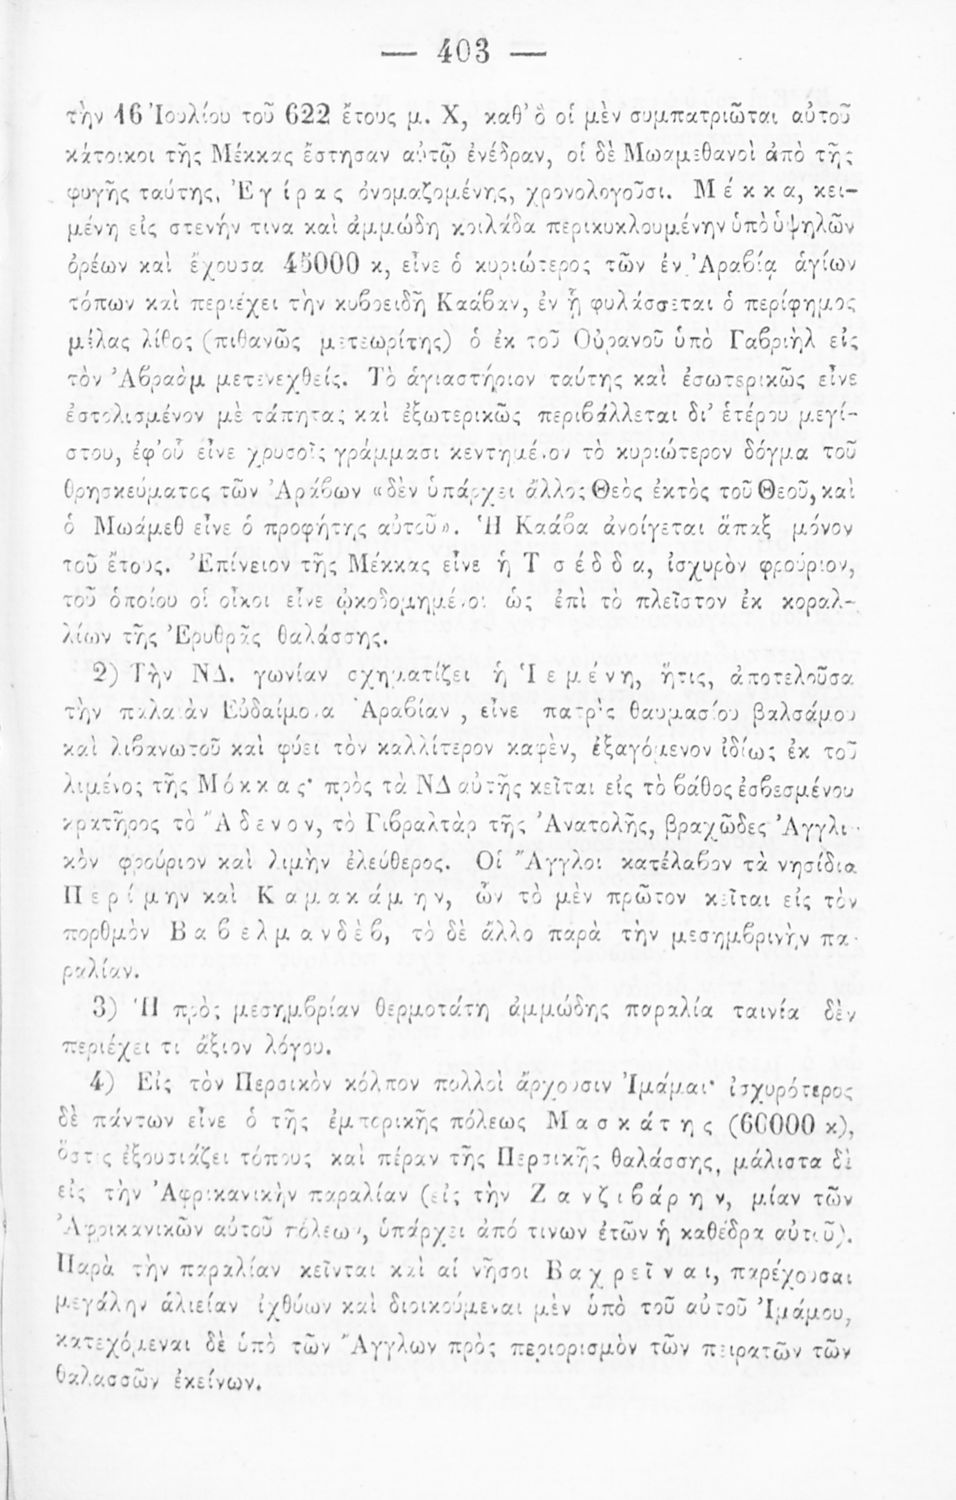 — 403 —
τὴν 16 Ἰουλίου τοῦ 622 ἔτους μ. Χ, καθ' ὃ οἱ μὲν συμπατριῶται αὐτοῦ
κάτοικοι τῆς Μέκκας ἔστησαν αὐτῷ ἐνέδραν, οἱ δὲ Μωαμεθανοὶ ἀπὸ τῆς
φυγῆς ταύτης, Ἐγίρας ὀνομαζομένης, χρονολογοῦσι. Μέκκα, κει-
μένη εἰς στενήν τινα καὶ ἀμμώδη κοιλάδα περικυκλουμένην ὑπὸ ὑψηλῶν
ὀρέων καὶ ἔχουσα 45000 κ, εἶνε ὁ κυριώτερος τῶν ἐν Ἀραβίᾳ ἁγίων
τόπων καὶ περιέχει τὴν κυβοειδῆ Καάβαν, ἐν ᾗ φυλάσσεται ὁ περίφημος
μέλας λίθος (πιθανῶς μετεωρίτης) ὁ ἐκ τοῦ Οὐρανοῦ ὑπὸ Γαβριὴλ εἰς
τὸν Ἀβραὰμ μετενεχθείς. Τὸ ἁγιαστήριον ταύτης καὶ ἐσωτερικῶς εἶνε
ἐστολισμένον μὲ τάπητας καὶ ἐξωτερικῶς περιβάλλεται δι' ἑτέρου μεγί-
στου, ἐφ' οὗ εἶνε χρυσοῖς γράμμασι κεντημένον τὸ κυριώτερον δόγμα τοῦ
θρησκεύματος τῶν Ἀράβων «δὲν ὑπάρχει ἄλλος Θεὸς ἐκτὸς τοῦ Θεοῦ, καὶ
ὁ Μωάμεθ εἶνε ὁ προφήτης αὐτοῦ». Ἡ Καάβα ἀνοίγεται ἅπαξ μόνον
τοῦ ἔτους. Ἐπίνειον τῆς Μέκκας εἶνε ἡ Τσέδδα, ἰσχυρὸν φρούριον,
τοῦ ὁποίου οἱ οἶκοι εἶνε ᾠκοδομημένοι ὡς ἐπὶ τὸ πλεῖστον ἐκ κοραλ-
λίων τῆς Ἐρυθρᾶς θαλάσσης.
2) Τὴν ΝΔ. γωνίαν σχηματίζει ἡ Ἱεμένη, ἥτις, ἀποτελοῦσα
τὴν παλαιὰν Εὐδαίμονα Ἀραβίαν, εἶνε πατρὶς θαυμασίου βαλσάμου
καὶ λιβανωτοῦ καὶ φύει τὸν καλλίτερον καφὲν, ἐξαγόμενον ἰδίως ἐκ τοῦ
λιμένος τῆς Μόκκας· πρὸς τὰ ΝΔ αὐτῆς κεῖται εἰς τὸ βάθος ἐσβεσμένου
κρατῆρος τὸ Ἄδενον, τὸ Γιβραλτὰρ τῆς Ἀνατολῆς, βραχῶδες Ἀγγλι-
κὸν φρούριον καὶ λιμὴν ἐλεύθερος. Οἱ Ἄγγλοι κατέλαβον τὰ νησίδια
Περίμην καὶ Καμακάμην, ὧν τὸ μὲν πρῶτον κεῖται εἰς τὸν
πορθμὸν Βαβελμανδὲβ, τὸ δὲ ἄλλο παρὰ τὴν μεσημβρινὴν πα-
ραλίαν.
3) Ἡ πρὸς μεσημβρίαν θερμοτάτη ἀμμώδης παραλία ταινία δὲν
περιέχει τι ἄξιον λόγου.
4) Εἰς τὸν Περσικὸν κόλπον πολλοὶ ἄρχουσιν Ἰμάμαι· ἰσχυρότερος
δὲ πάντων εἶνε ὁ τῆς ἐμπορικῆς πόλεως Μασκάτης (60000 κ),
ὅστις ἐξουσιάζει τόπους καὶ πέραν τῆς Περσικῆς θαλάσσης, μάλιστα δὲ
εἰς τὴν Ἀφρικανικὴν παραλίαν (εἰς τὴν Ζανζιβάρην, μίαν τῶν
Ἀφρικανικῶν αὐτοῦ πόλεων, ὑπάρχει ἀπό τινων ἐτῶν ἡ καθέδρα αὐτοῦ).
Παρὰ τὴν παραλίαν κεῖνται καὶ αἱ νῆσοι Βαχρεῖναι, παρέχουσαι
μεγάλην ἁλιείαν ἰχθύων καὶ διοικούμεναι μὲν ὑπὸ τοῦ αὐτοῦ Ἰμάμου,
κατεχόμεναι δὲ ὑπὸ τῶν Ἄγγλων πρὸς περιορισμὸν τῶν πειρατῶν τῶν
θαλασσῶν ἐκείνων.